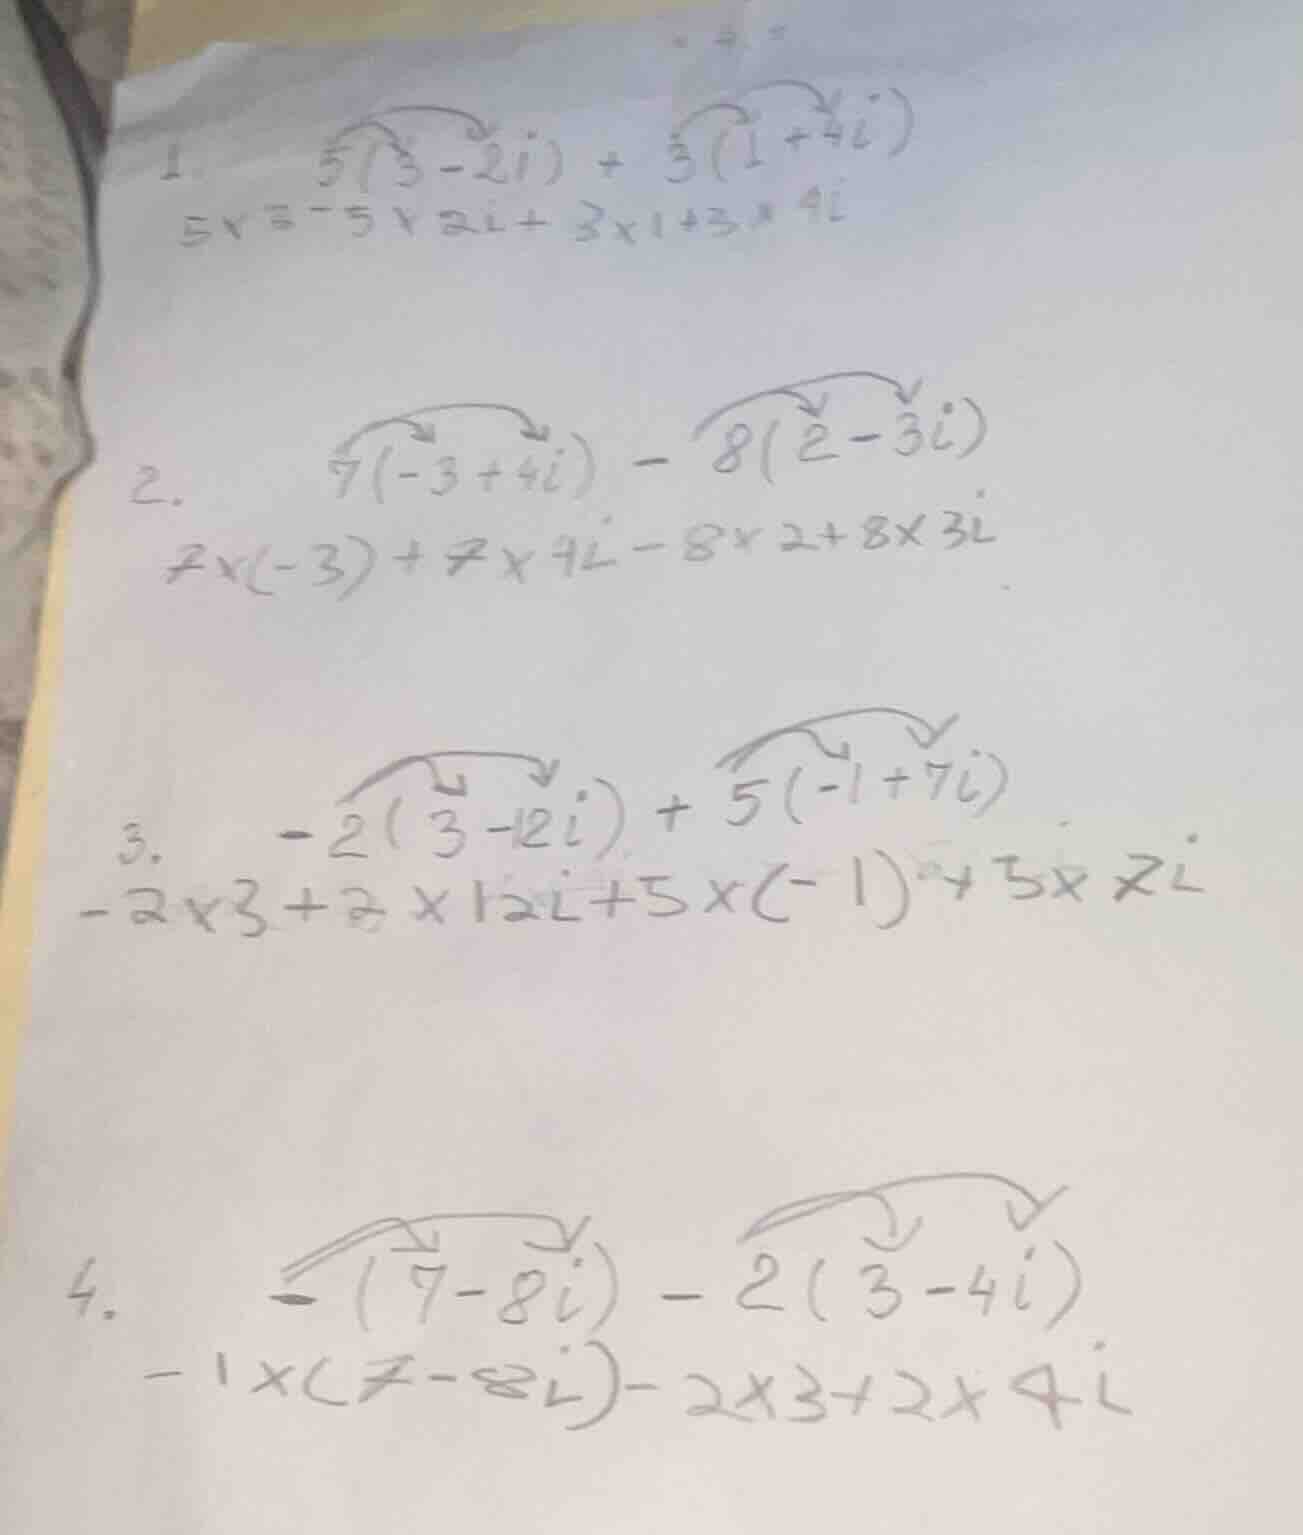 1. 5(3-2i) + 3(1+4i)
5x3-5x2i+3x1+3x4i
2. 7(-3+4i) - 8(2-3i)
7x(-3)+7x4i-8x2+8x3i
3. -2(3-12i) + 5(-1+7i)
-2x3+2x12i+5x(-1)+5x7i
4. -(7-8i) - 2(3-4i)
-1x(7-8i)-2x3+2x4i